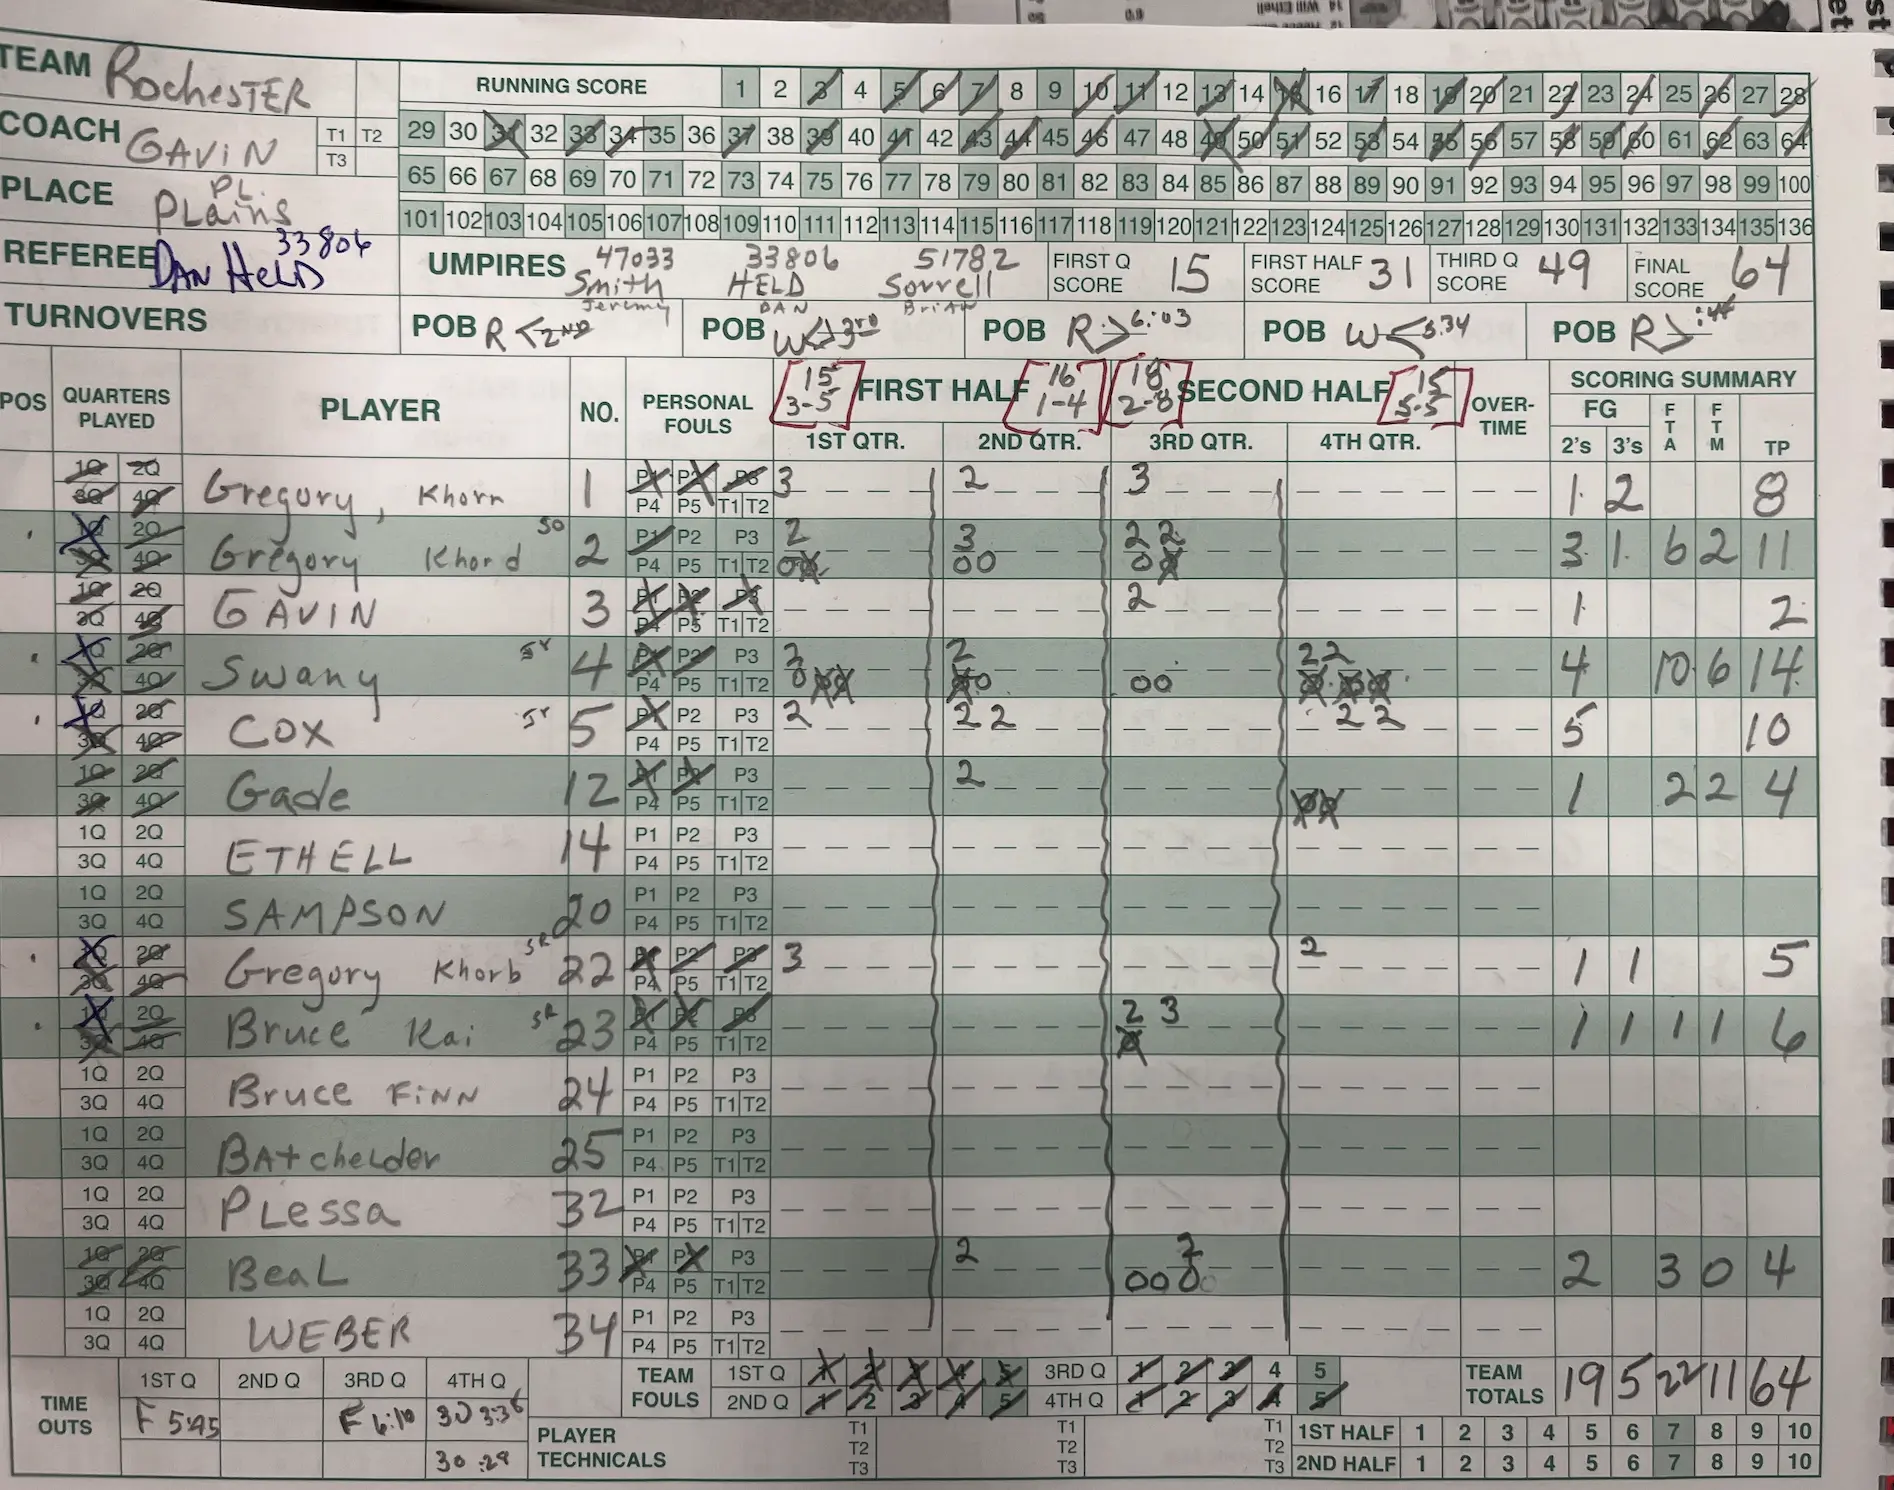 TEAM Rochester
COACH GAVIN T1 T2 T3
PLACE PL. Plains
REFEREE DAN HELD 33806
TURNOVERS
RUNNING SCORE 1 2 3 4 5 6 7 8 9 10 11 12 13 14 15 16 17 18 19 20 21 22 23 24 25 26 27 28
29 30 31 32 33 34 35 36 37 38 39 40 41 42 43 44 45 46 47 48 49 50 51 52 53 54 55 56 57 58 59 60 61 62 63 64
65 66 67 68 69 70 71 72 73 74 75 76 77 78 79 80 81 82 83 84 85 86 87 88 89 90 91 92 93 94 95 96 97 98 99 100
101 102 103 104 105 106 107 108 109 110 111 112 113 114 115 116 117 118 119 120 121 122 123 124 125 126 127 128 129 130 131 132 133 134 135 136
UMPIRES 47033 Smith Jeremy 33806 HELD DAN 51782 Sorrell Brian
FIRST Q SCORE 15 FIRST HALF SCORE 31 THIRD Q SCORE 49 FINAL SCORE 64
POB R < 2ND POB W <> 3RD POB R > 6:03 POB W < 5:34 POB R > :44
POS QUARTERS PLAYED PLAYER NO. PERSONAL FOULS 15 3-5 FIRST HALF 16 1-4 18 2-8 SECOND HALF 15 5-5 OVER-TIME SCORING SUMMARY
1ST QTR. 2ND QTR. 3RD QTR. 4TH QTR. FG 2's 3's FTA FTM TP
1Q 2Q 3Q 4Q Gregory, Khorn 1 P1 P2 P3 P4 P5 T1 T2 3 2 3 1 2 8
1Q 2Q 3Q 4Q Gregory Khord SO 2 P1 P2 P3 P4 P5 T1 T2 2 00 3 00 2 2 00 3 1 6 2 11
1Q 2Q 3Q 4Q GAVIN 3 P1 P2 P3 P4 P5 T1 T2 2 1 2
1Q 2Q 3Q 4Q Swany Jr 4 P1 P2 P3 P4 P5 T1 T2 2 000 2 00 00 2 2 000 4 10 6 14
1Q 2Q 3Q 4Q COX Jr 5 P1 P2 P3 P4 P5 T1 T2 2 2 2 2 2 5 10
1Q 2Q 3Q 4Q Gade 12 P1 P2 P3 P4 P5 T1 T2 2 00 1 2 2 4
1Q 2Q 3Q 4Q ETHELL 14 P1 P2 P3 P4 P5 T1 T2
1Q 2Q 3Q 4Q SAMPSON 20 P1 P2 P3 P4 P5 T1 T2
1Q 2Q 3Q 4Q Gregory Khorb SR 22 P1 P2 P3 P4 P5 T1 T2 3 2 1 1 5
1Q 2Q 3Q 4Q Bruce Kai SR 23 P1 P2 P3 P4 P5 T1 T2 2 3 0 1 1 1 1 6
1Q 2Q 3Q 4Q Bruce FINN 24 P1 P2 P3 P4 P5 T1 T2
1Q 2Q 3Q 4Q BAtcheLder 25 P1 P2 P3 P4 P5 T1 T2
1Q 2Q 3Q 4Q PLessa 32 P1 P2 P3 P4 P5 T1 T2
1Q 2Q 3Q 4Q BeaL 33 P1 P2 P3 P4 P5 T1 T2 2 2 000 2 3 0 4
1Q 2Q 3Q 4Q WEBER 34 P1 P2 P3 P4 P5 T1 T2
TIME OUTS 1ST Q 2ND Q 3RD Q 4TH Q
F 5:45 F 6:10 30 3:36
30 :29
TEAM FOULS 1ST Q 1 2 3 4 5 3RD Q 1 2 3 4 5
2ND Q 1 2 3 4 5 4TH Q 1 2 3 4 5
TEAM TOTALS 19 5 22 11 64
PLAYER TECHNICALS T1 T2 T3 T1 T2 T3 T1 T2 T3
1ST HALF 1 2 3 4 5 6 7 8 9 10
2ND HALF 1 2 3 4 5 6 7 8 9 10